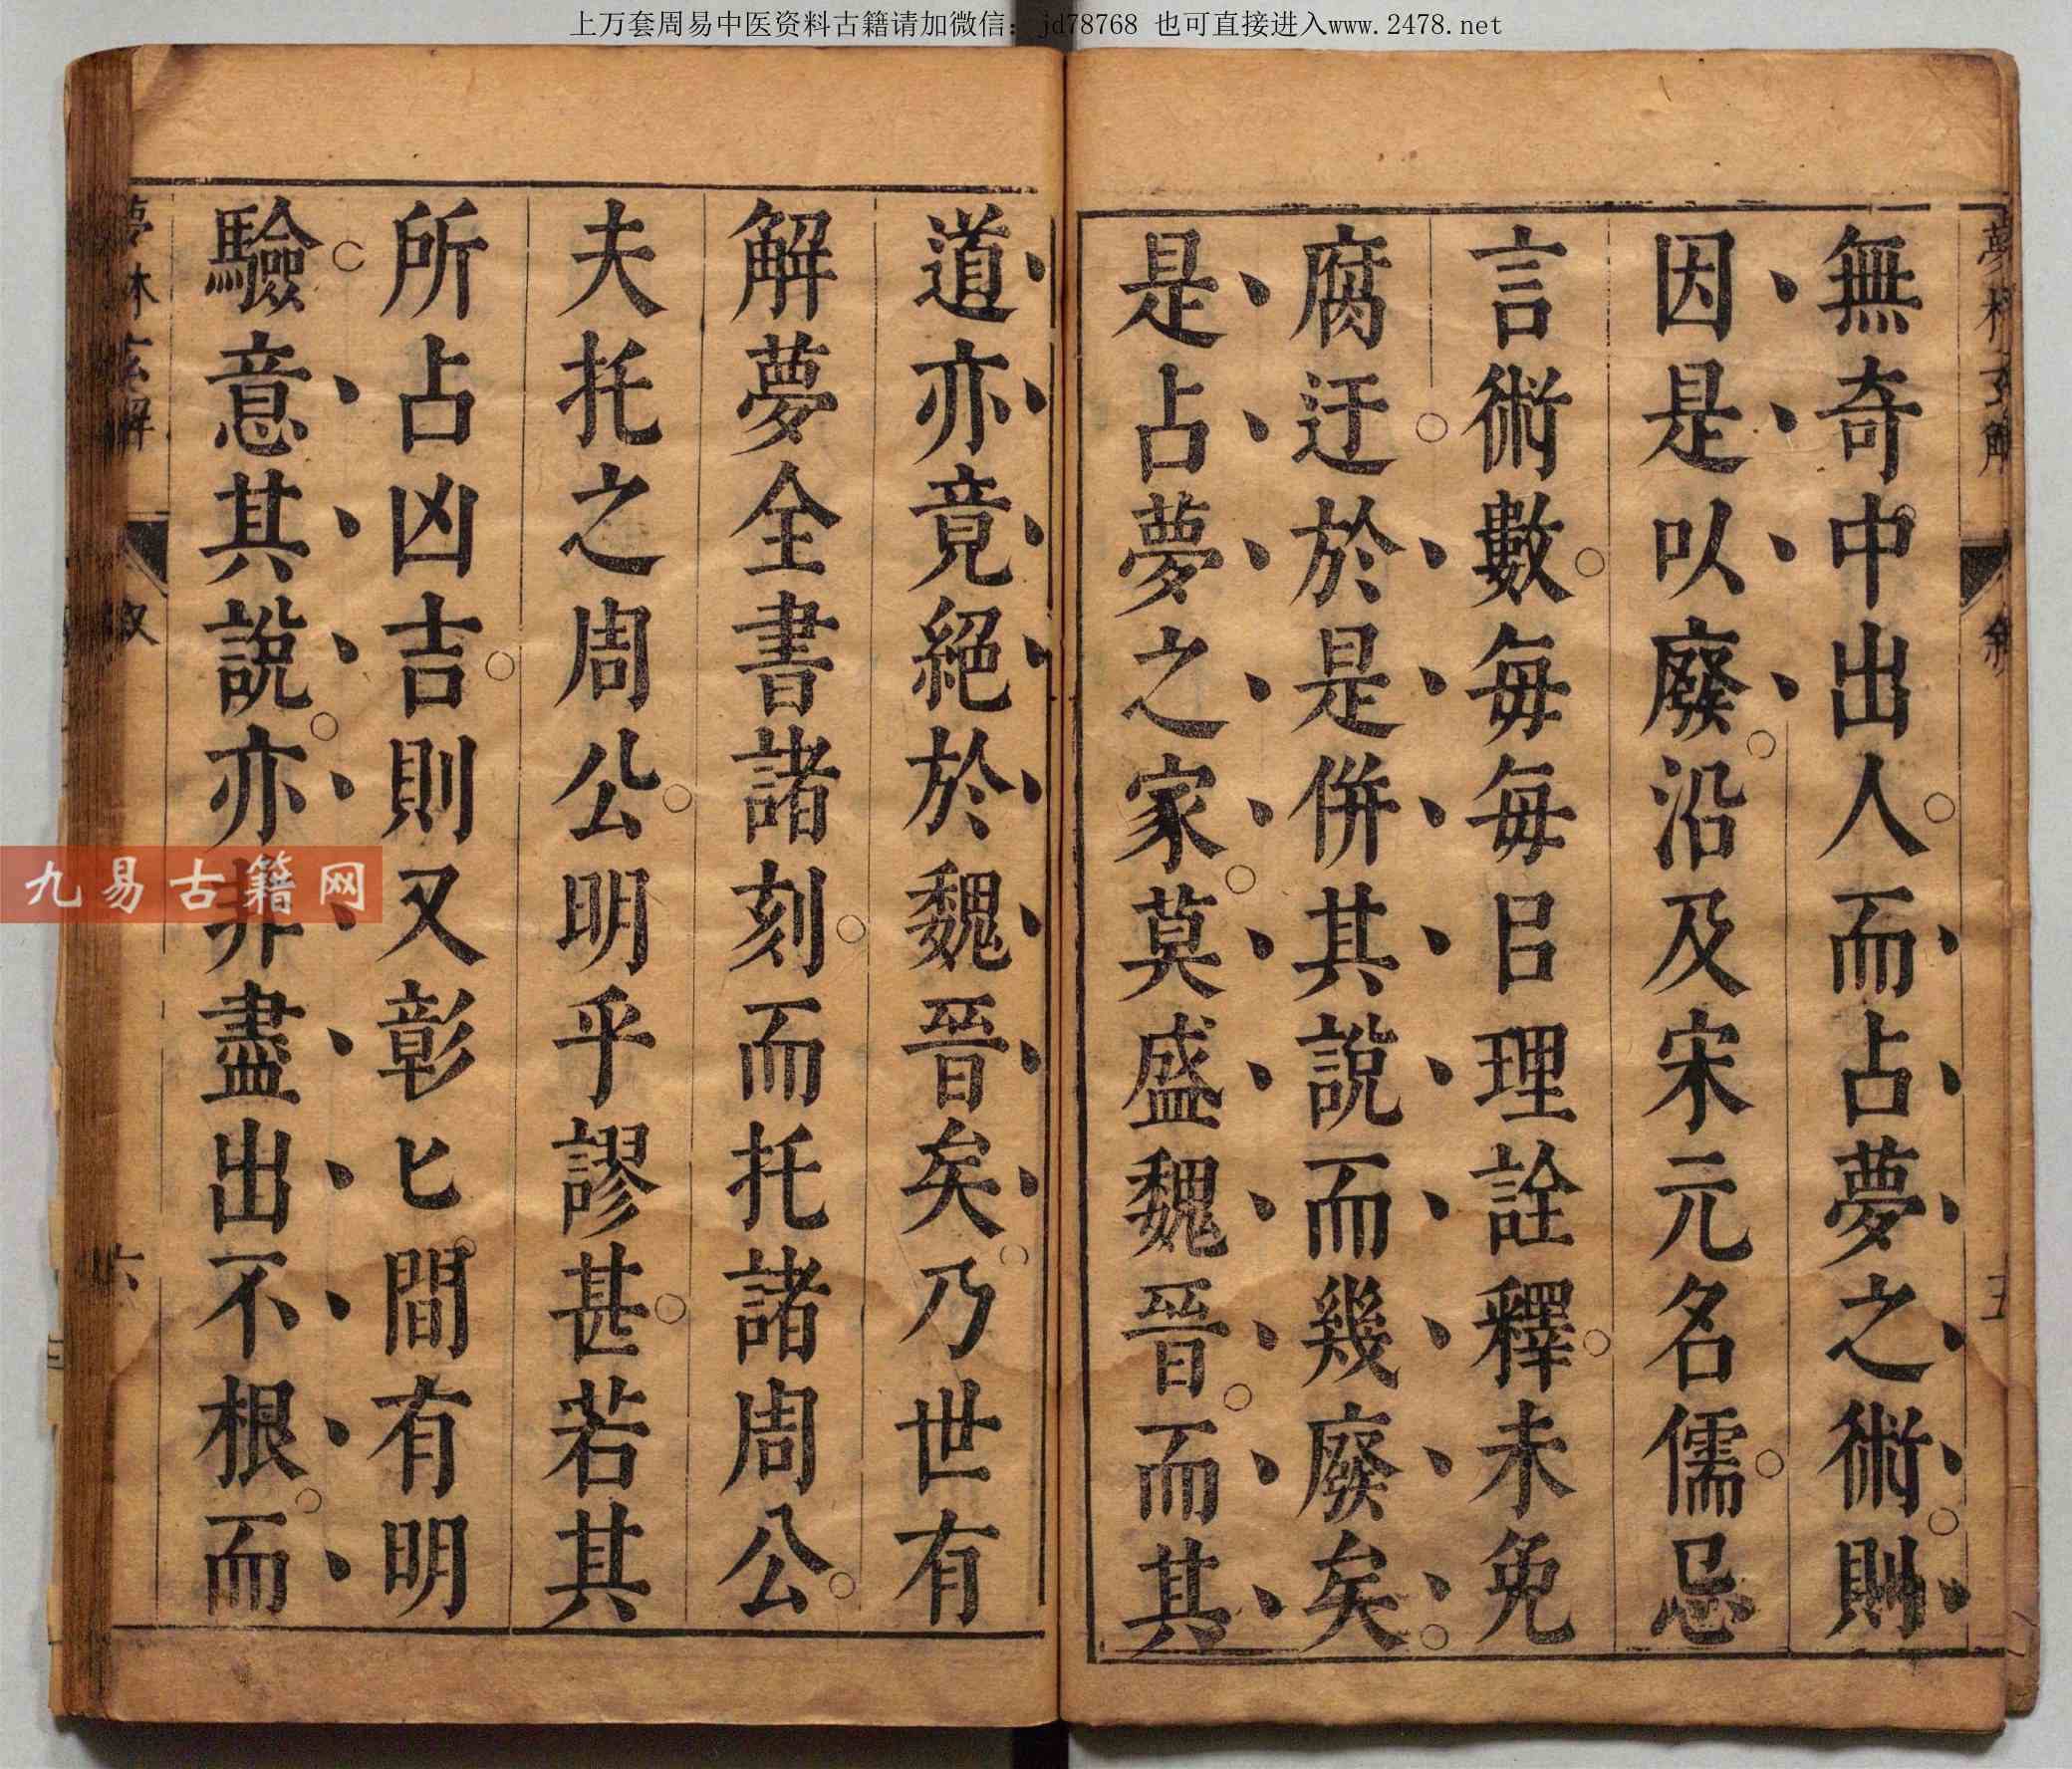 上万套周易中医资料古籍请加微信：jd78768 也可直接进入www.2478.net
無奇中出人而占夢之術則
因是以廢沿及宋元名儒忌
言術數每每㠯理詮釋未免
腐迂於是併其說而幾廢矣
是占夢之家莫盛魏晉而其
道亦竟絕於魏晉矣乃世有
解夢全書諸刻而托諸周公
夫托之周公明乎謬甚若其
所占凶吉則又彰匕間有明
驗意其說亦非盡出不根而
夢林玄解
敘
六
九易古籍网